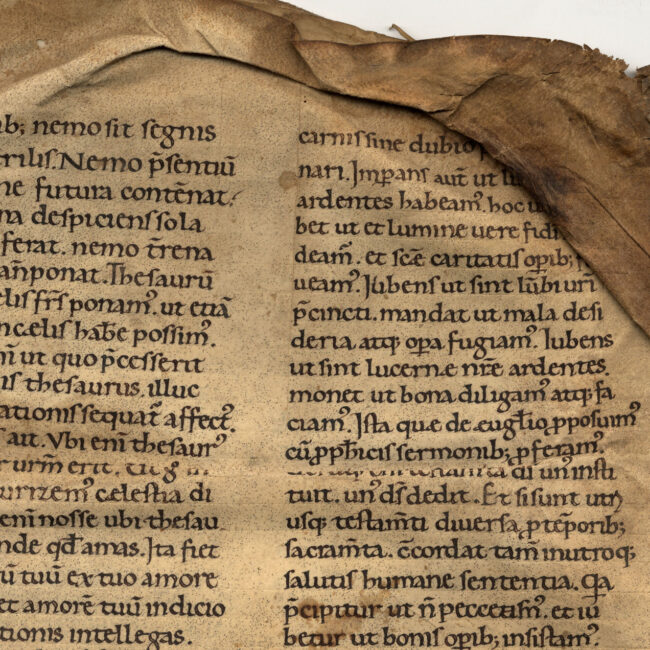 nemo sit segnis
Nemo p̄sentiū
futura contēnat.
despiciens sola
ferat. nemo t̄rena
anponat. Thesaurū
celis fr̄s ponam᷒. ut etiā
in celis hab̄e possim᷒.
ut quo p̄cesserit
thesaurus. illuc
sequat᷒ affect᷒.
ait. Vbi enī thesaur᷒
urm̄ erit.
celestia di
enī nosse ubi thesau
qđ amas. Ita fiet
tuū ex tuo amore
et amorē tuū indicio
intellegas.
carnis sine dubio
nari. Imp̱ans aūt ut
ardentes habeam᷒. hoc
bet ut et lumine uere fidei
deam᷒. et sc̄e caritatis op̱ib;
ueam᷒. Iubens ut sint lūbi urī
p̄cincti. mandat ut mala desi
deria atq; op̱a fugiam᷒. Iubens
ut sint lucernę nr̄e ardentes.
monet ut bona diligam᷒ atq; fa
ciam᷒. Ista quę de eug̅lio ꝓposuim᷒
cū ꝓph̄icis sermonib; ꝓferam᷒.
un᷒ insti
tuit. un᷒ d̄s dedit. Et si sunt
usq; testam̄ti diuersa ꝓ tēporib;
sacram̄ta. c̄cordat tam̄ in utroq;
salutis humane sententia.
p̄cipitur ut n̄ peccem᷒. et iu
betur ut bonis op̱ib; insistam᷒.